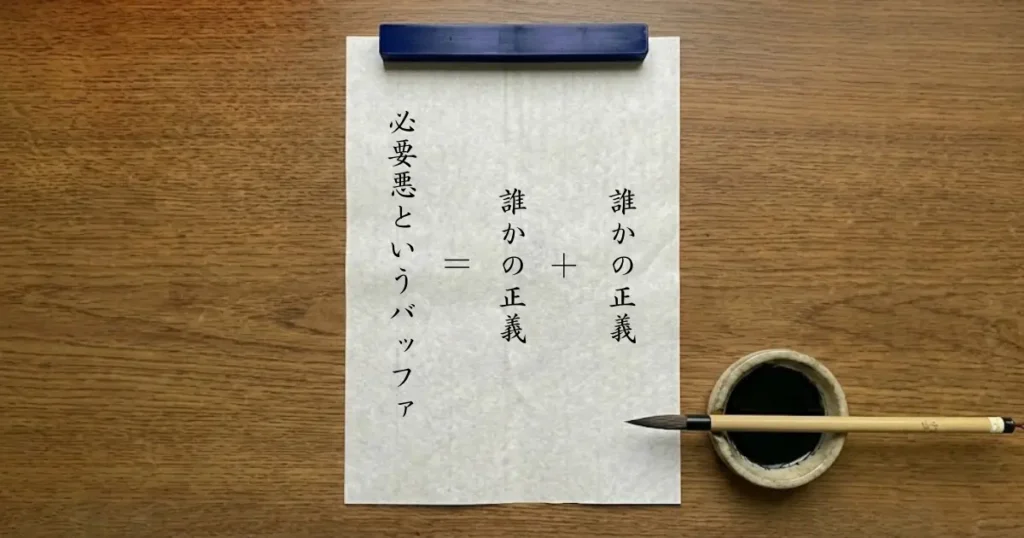 誰かの正義
+
誰かの正義
=
必要悪というバッファ